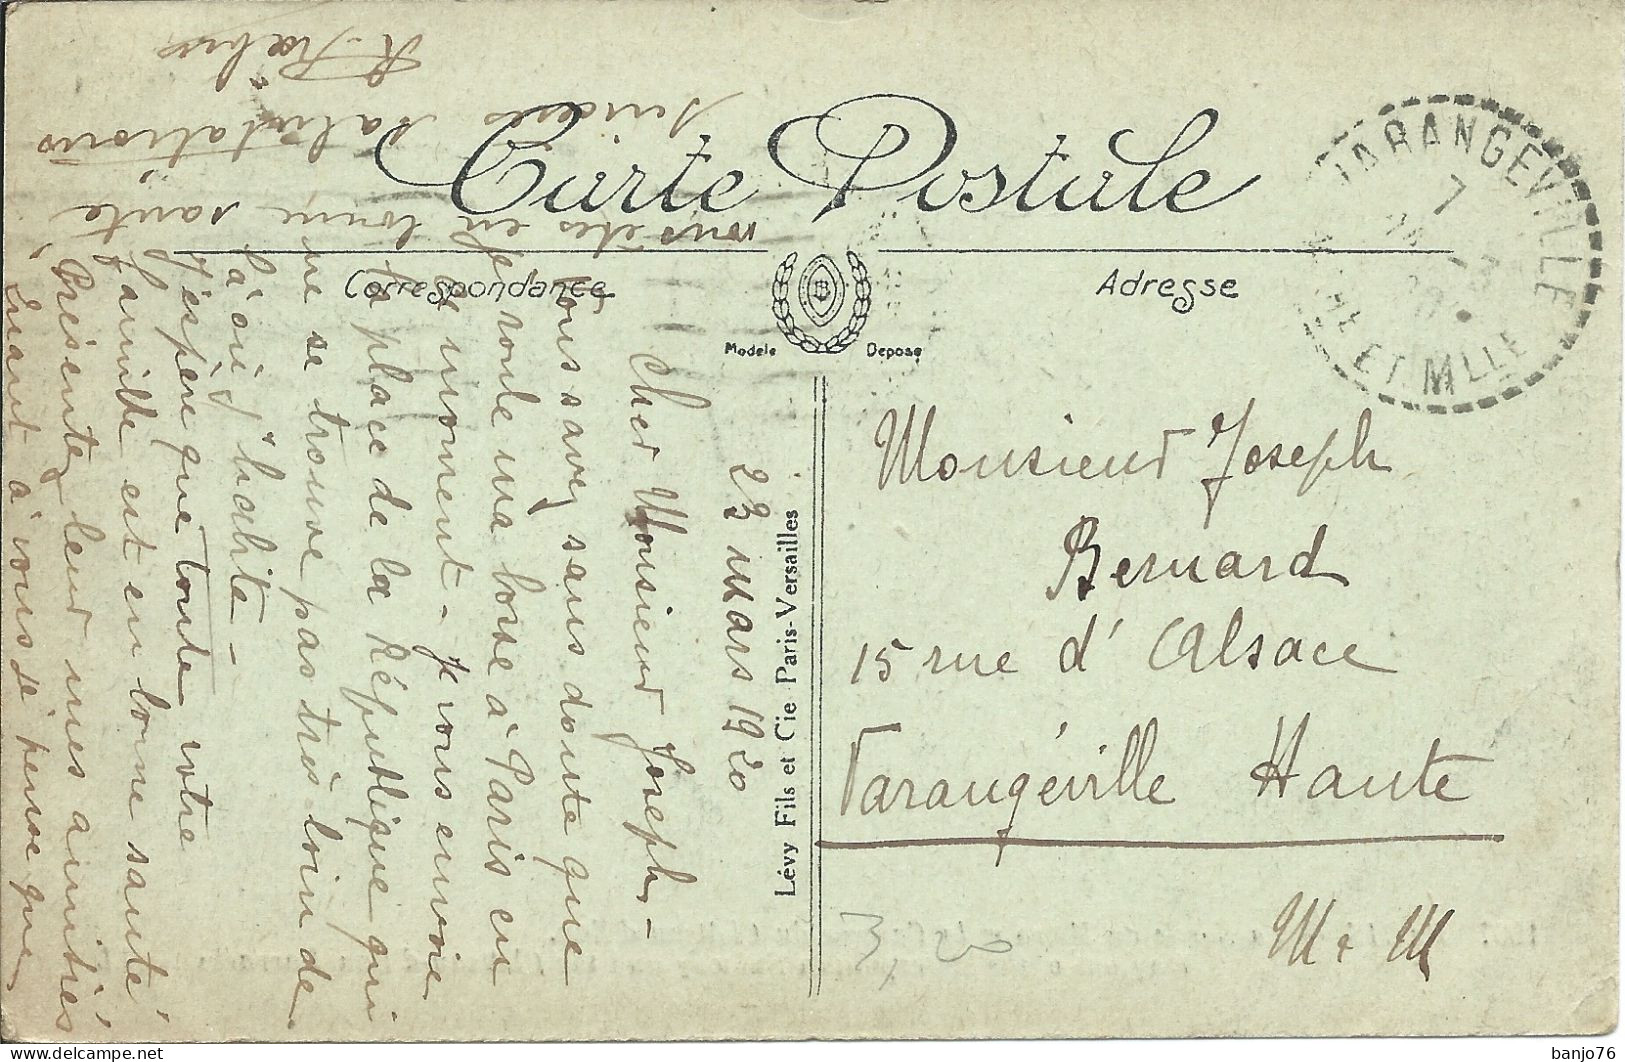 Carte Postale
Correspondance
Adresse
Modele Depose
B
Lévy Fils et Cie Paris-Versailles
VARANGEVILLE
7
20
ET MLLE
23 mars 1920
Cher Monsieur Joseph -
Vous savez sans doute que
je roule ma bosse à Paris en
ce moment - Je vous envoie
la place de la République qui
ne se trouve pas très loin de
là où j'habite -
J'espère que toute votre
famille est en bonne santé
Présentez leur mes amitiés
Quant à vous je pense que
vous êtes en bonne santé
salutations
Monsieur Joseph
Bernard
15 rue d'Alsace
Varangéville Haute
M & M
3,20
banjo76